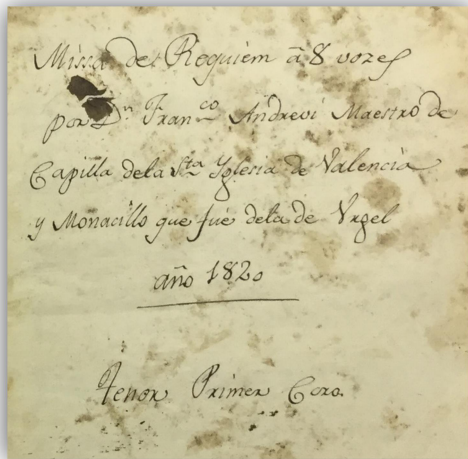 Missa de Requiem â 8 vozes
por Dn Franco Andrevi Maestro de
Capilla dela Sta Yglesia de Valencia
y Monacillo que fué dela de Urgel
año 1820
Tenor Primer Coro.